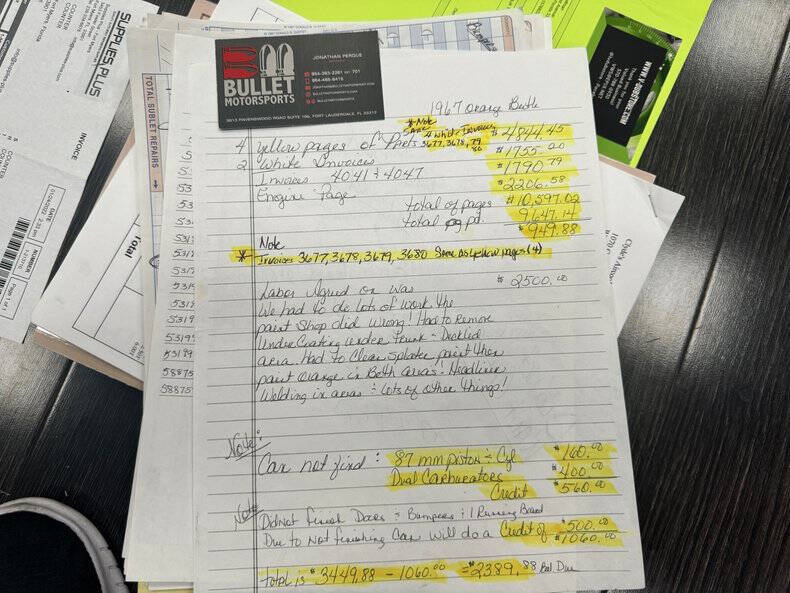 BULLET
MOTORSPORTS
JONATHAN PERGUE
3013 RAVENSWOOD ROAD SUITE 106, FORT LAUDERDALE, FL 33312
1967 Orange Beetle
* Note
4 White Invoices
3677, 3678, 79
80
4 Yellow pages of Parts $4844.45
2 White Invoices $1755.00
Invoices 4041 & 4047 $1790.79
Engine Page $2206.58
Total of pages $10,597.02
Total pg pd. 9647.14
$949.88
Note
* Invoices 3677, 3678, 3679, 3680 Same as yellow pages (4)
Labor Agreed on was $2500.00
We had to do lots of work the
paint Shop did Wrong! Had to Remove
UnderCoating under trunk - Decklid
area. Had to Clean Splater paint then
paint orange in Both areas! Headliner
Welding in areas & Lots of other things!
Note:
Can not find: 87 mm piston & Cyl $160.00
Dual Carburators $400.00
Credit $560.00
Note
Did Not finish Doors & Bumpers & 1 Running Board
Due to Not finishing Car Will do a Credit of $500.00
$1060.00
Total is $3449.88 - 1060.00 = $2389.88 Bal. Due
SUPPLIES PLUS
INVOICE
COUNTER
DATE
01/24/2022 2:33 pm
NUMBER
Page 1 of 1
TOTAL SUBLET REPAIRS
Total
53199
58875
WWW.V-DUBSTORE.COM